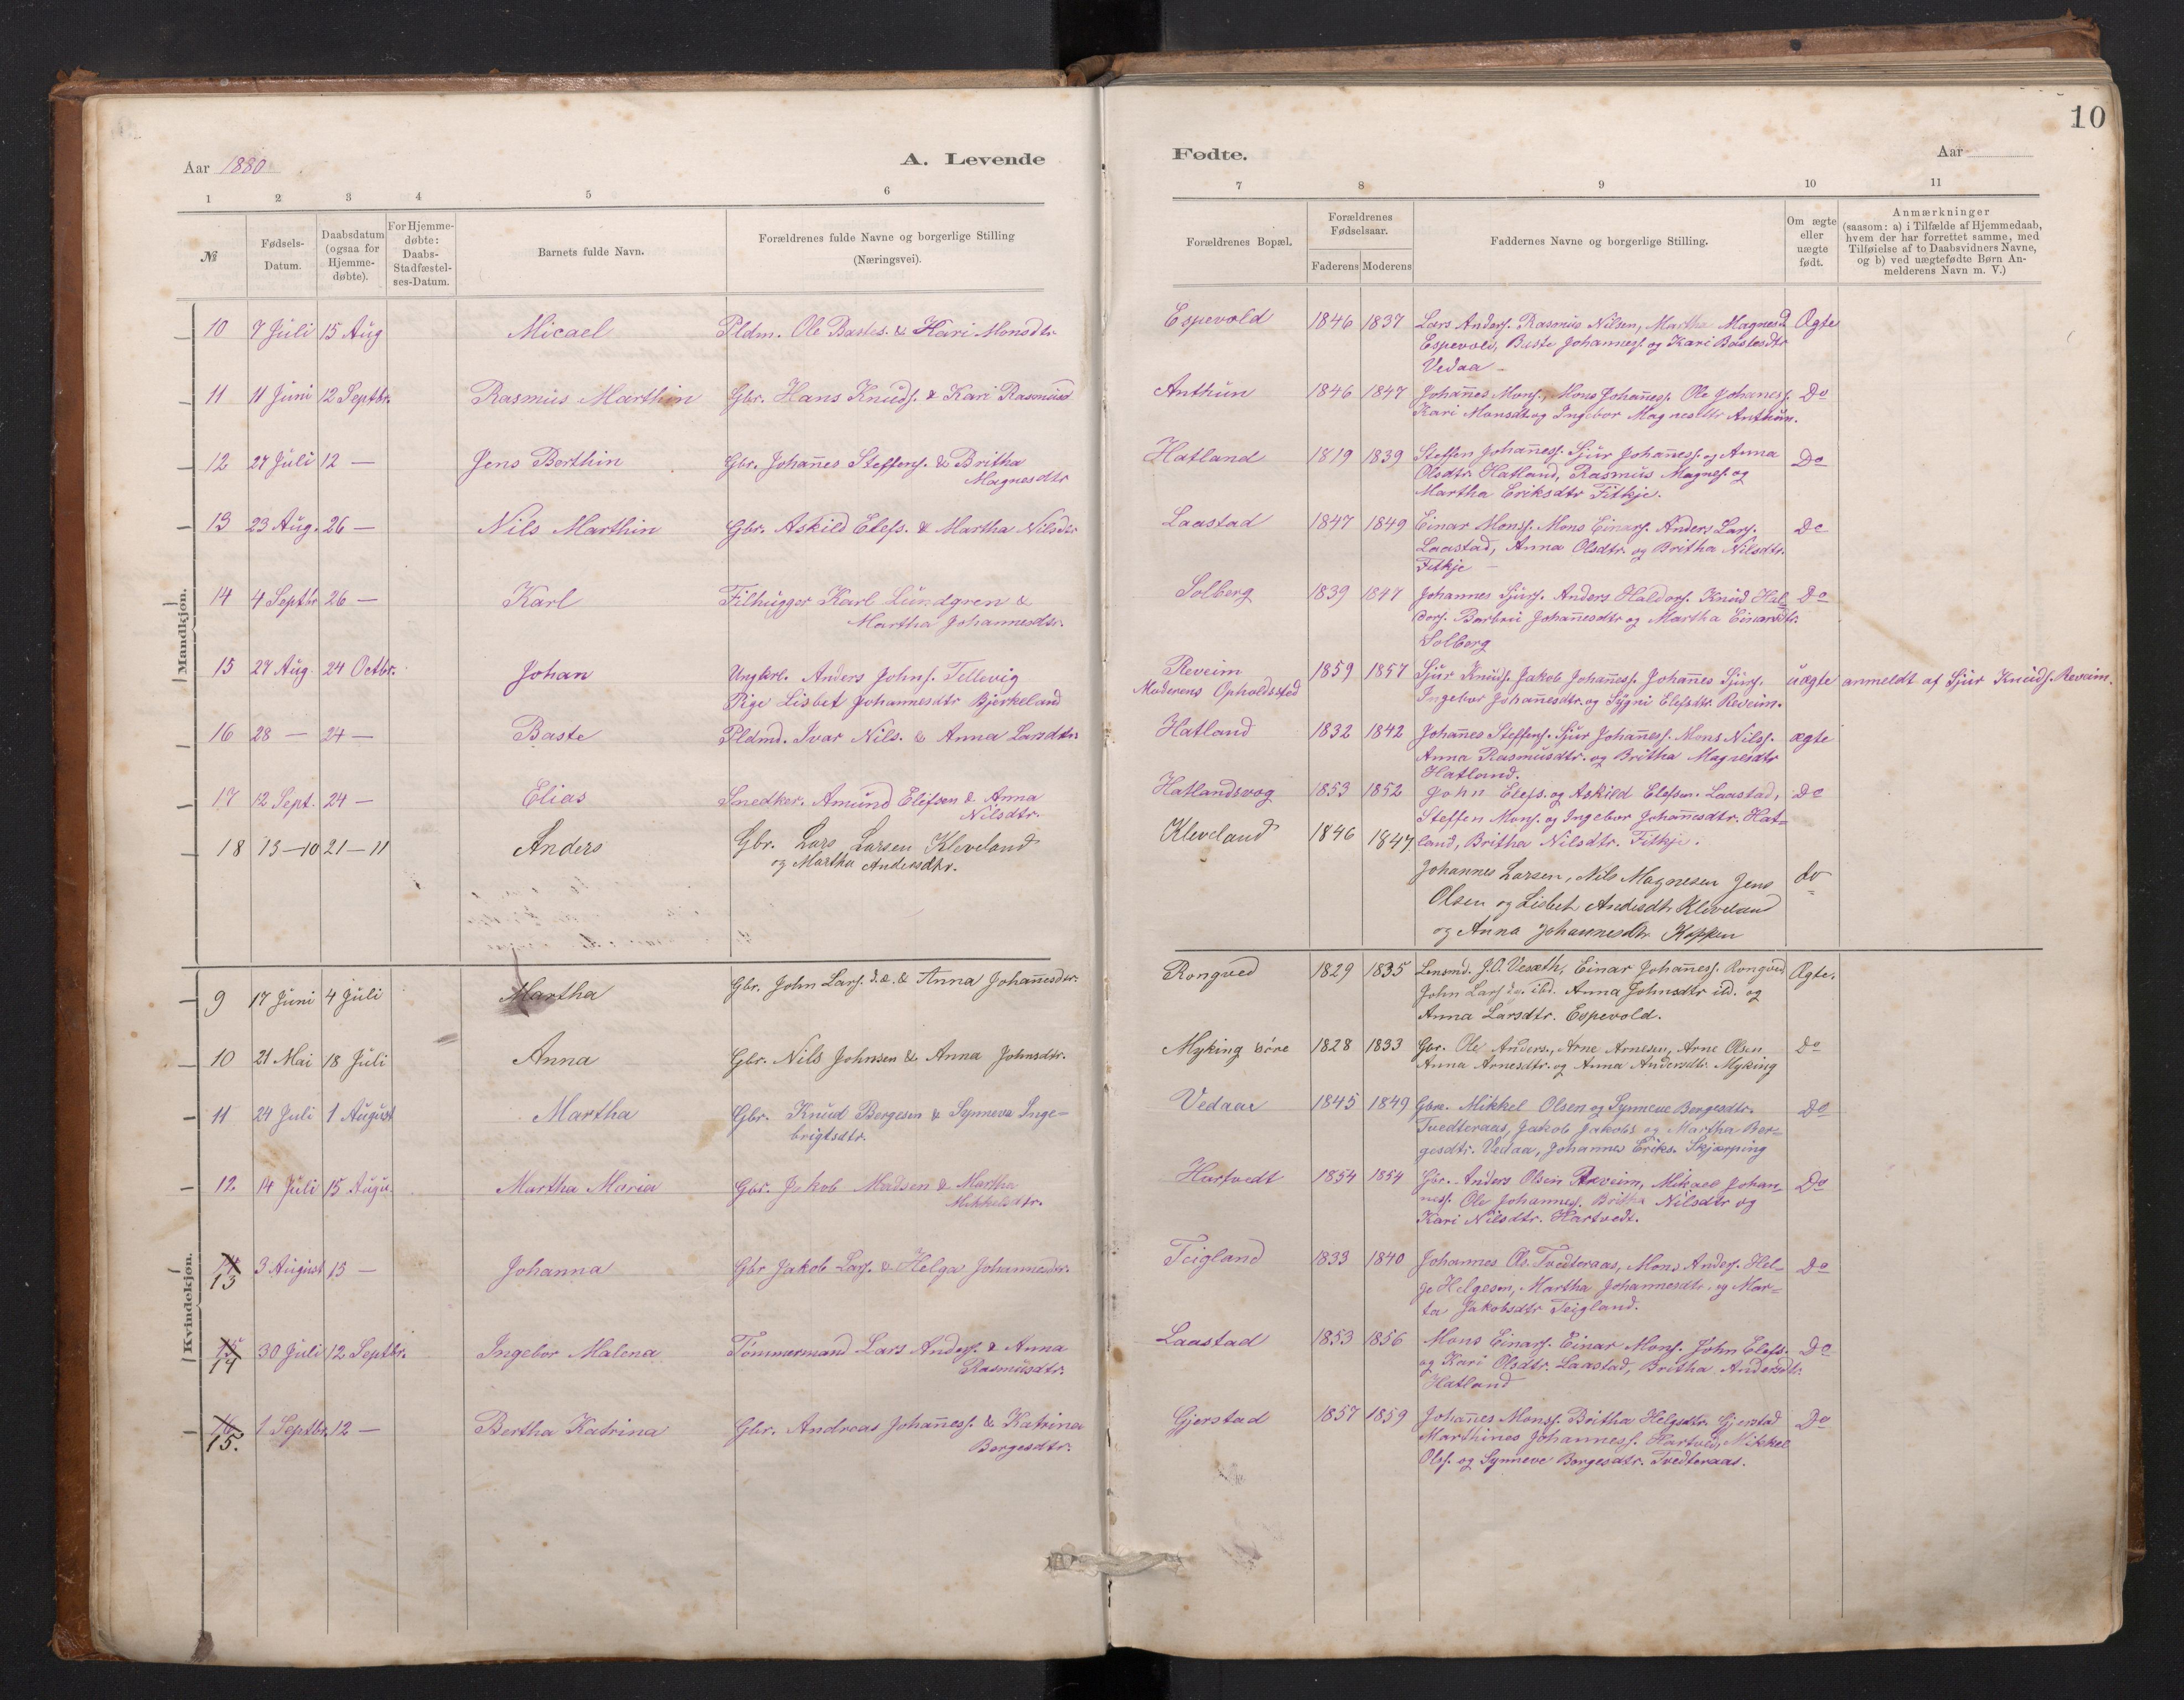 Aar 1880
A. Levende
1 2 3 4 5 6
№
Fødsels-
Datum.
Daabsdatum
(ogsaa for
Hjemme-
døbte).
For Hjemme-
døbte:
Daabs-
Stadfæstel-
ses-Datum.
Barnets fulde Navn.
Forældrenes fulde Navne og borgerlige Stilling
(Næringsvei).
Mandkjøn.
10 7 Juli 15 Aug Micael Pldm. Ole Bastes. & Kari Monsdtr.
11 11 Juni 12 Septbr. Rasmus Marthin Gbr. Hans Knuds. & Kari Rasmusd
12 27 Juli 12 — Jens Berthin Gbr. Johannes Steffens. & Britha
Magnesdtr
13 23 Aug. 26 — Nils Marthin Gbr. Askild Elefs. & Martha Nilsdtr
14 4 Septbr 26 — Karl Filhugger Karl Lundgren &
Martha Johannesdtr.
15 27 Aug. 24 Octbr. Johan Ungkrl. Anders Johns. Tellevig
Pige Lisbet Johannesdtr Bjerkeland
16 28 — 24 — Baste Pldmd. Ivar Nils. & Anna Larsdtr
17 12 Sept. 24 — Elias Snedker. Amund Elifsen & Anna
Nilsdtr.
18 13—10 21—11 Anders Gbr. Lars Larsen Kleveland
og Martha Andersdtr.
Kvindekjøn.
9 17 Juni 4 Juli Martha Gbr. John Lars. d.æ. & Anna Johannesdtr.
10 21 Mai 18 Juli Anna Gbr. Nils Johnsen & Anna Johnsdtr.
11 24 Juli 1 August Martha Gbr. Knud Bergesen & Synneva Inge-
brigtsdtr.
12 14 Juli 15 Augu. Martha Maria Gbr. Jakob Madsen & Martha
Mikkelsdtr.
13 3 August 15 — Johanna Gbr Jakob Lars. & Helga Johannesdtr.
14 30 Juli 12 Septbr. Ingebor Malena Tömmermand Lars Anders. & Anna
Rasmusdtr.
15. 1 Septbr. 12 — Bertha Katrina Gbr. Andreas Johannes. & Katrina
Borgesdtr.
10
Fødte.
Aar
7 8 9 10 11
Forældrenes Bopæl.
Forældrenes
Fødselsaar.
Faderens Moderens
Faddernes Navne og borgerlige Stilling.
Om ægte
eller
uægte
født.
Anmærkninger
(saasom: a) i Tilfælde af Hjemmedaab,
hvem der har forrettet samme, med
Tilføielse af to Daabsvidners Navne,
og b) ved uægtefødte Børn An-
melderens Navn m. V.)
Espevold 1846 1837 Lars Anders. Rasmus Nilsen, Martha Magnesd Ægte
Espevold, Baste Johannes. og Kari Bastesdtr
Vedaa —
Anthun 1846 1847 Johannes Mons., Mons Johannes. Ole Johannes. Do
Kari Monsdt. og Ingebor Magnesdtr Anthun.
Hatland 1819 1839 Steffen Johannes. Sjur Johannes. og Anna Do
Olsdtr. Hatland, Rasmus Magnes. og
Martha Eriksdtr Fitkje.
Laastad 1847 1849 Einar Mons. Mons Einars. Anders Lars. Do
Laastad, Anna Olsdtr. og Britha Nilsdtr.
Fitkje —
Solberg 1839 1847 Johannes Sjurs. Anders Haldors. Knud Hal- Do
dors. Barbru Johannesdtr og Martha Einarsdtr.
Solberg
Reveim 1859 1857 Sjur Knuds. Jakob Johannes. Johannes Sjurs. uægte anmeldt af Sjur Knuds. Reveim.
Moderens Opholdssted Ingebor Johannesdtr. og Sygni Elefsdtr. Reveim.
Hatland 1832 1842 Johannes Steffens. Sjur Johannes. Mons Nils. ægte
Anna Rasmusdtr. og Britha Magnesdtr
Hatland.
Hatlandsvog 1853 1852 John Elefs. og Askild Elefsen. Laastad, Do
Steffen Mons. og Ingebor Johannesdtr. Hat-
land, Britha Nilsdtr. Fitkje.
Kleveland 1846 1847
Johannes Larsen, Nils Magnesen Jens do
Olsen og Lisbet Andersdtr Kleveland
og Anna Johannesdtr. Koppen
Rongved 1829 1835 Lensmd. J.O. Vesæth, Einar Johannes. Rongved Ægte.
John Lars d.y. ibd. Anna Johnsdtr ibd. og
Anna Larsdtr. Espevold.
Myking øvre 1828 1833 Gbr. Ole Anders., Arne Arnesen, Arne Olsen Do
Anna Arnesdtr. og Anna Andersdtr. Myking
Vedaa 1845 1849 Gbr. Mikkel Olsen og Synneve Borgesdtr. Do
Tvedteraas, Jakob Jakobs. og Martha Bor-
gesdtr. Vedaa, Johannes Eriks. Skjærping
Hartvedt 1854 1854 Gbr. Anders Olsen Reveim, Mikael Johan- Do
nes. Ole Johannes. Britha Nilsdtr og
Kari Nilsdtr. Hartvedt.
Teigland 1833 1840 Johannes Ols. Tvedteraas, Mons Anders. Hel- Do
ge Helgesen, Martha Johannesdtr. og Mar-
ta Jakobsdtr Teigland.
Laastad 1853 1856 Mons Einars. Einar Mons. John Elefs. Do
og Kari Olsdtr. Laastad, Britha Andersdtr.
Hatland
Gjerstad 1857 1859 Johannes Mons. Britha Helgsdtr. Gjerstad Do
Marthines Johannes. Hartved, Mikkel
Ols. og Synneve Borgesdtr. Tvedteraas.